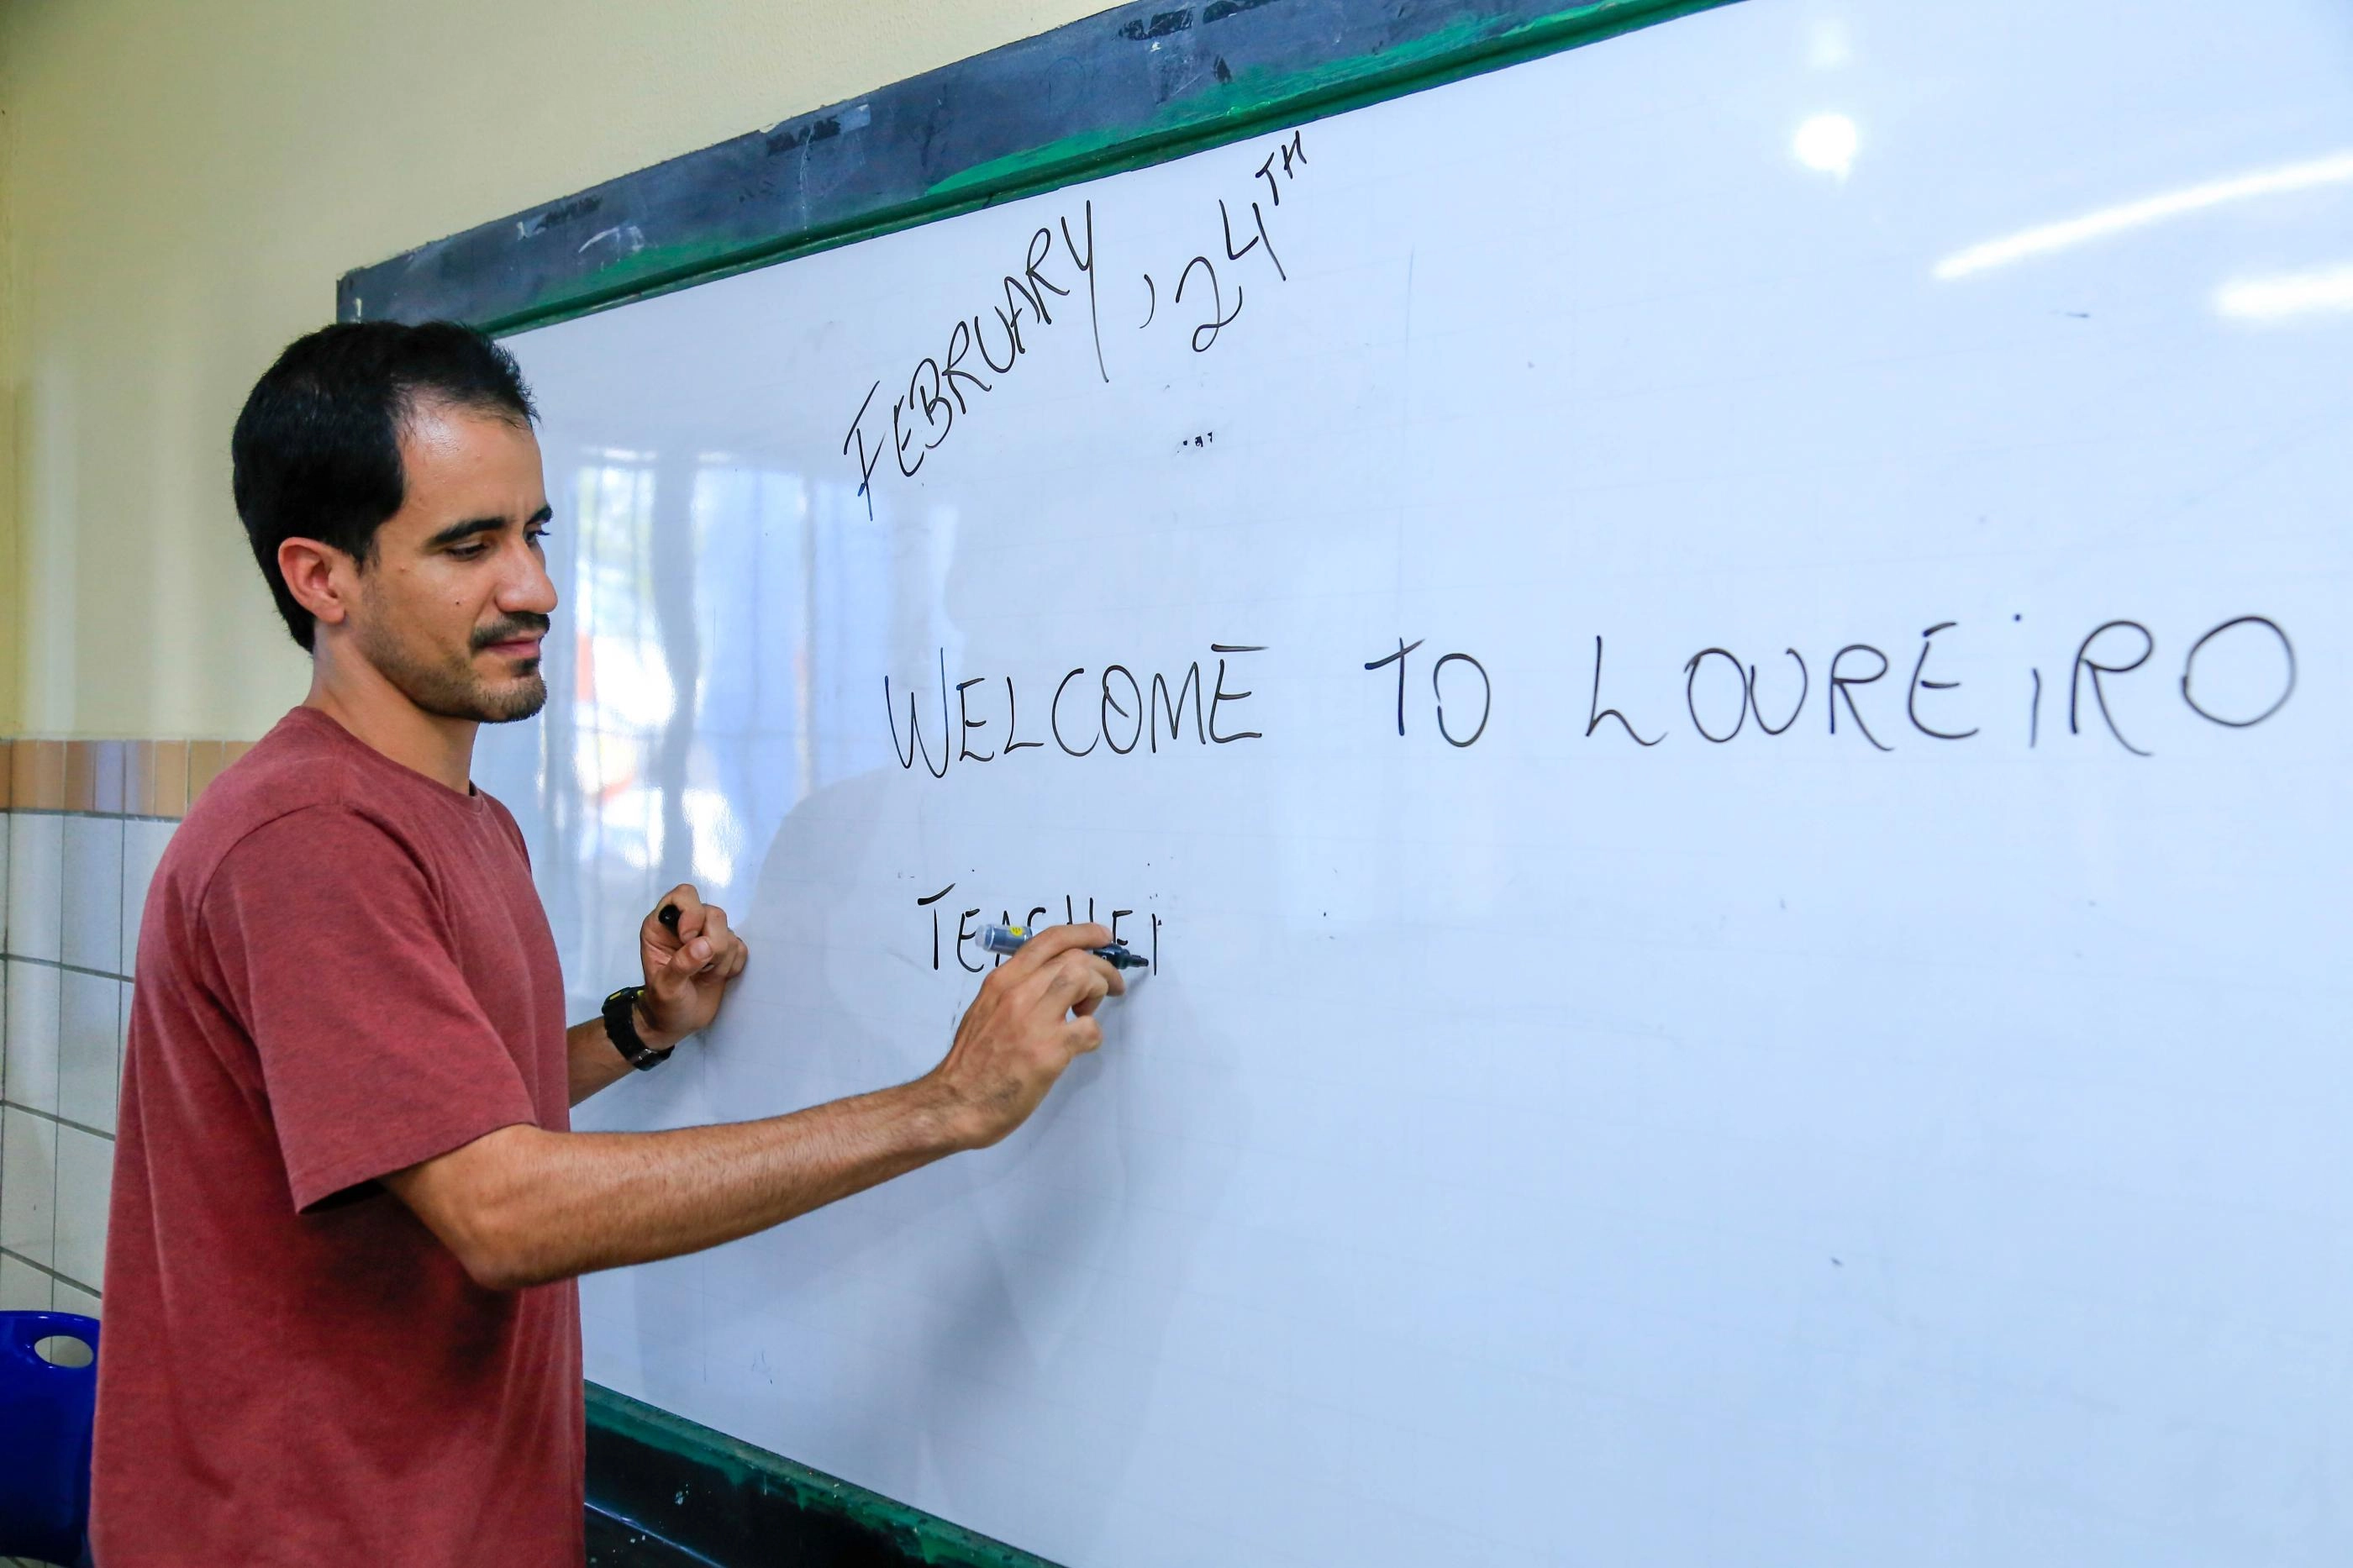 FEBRUARY, 24TH
WELCOME TO LOUREiRO